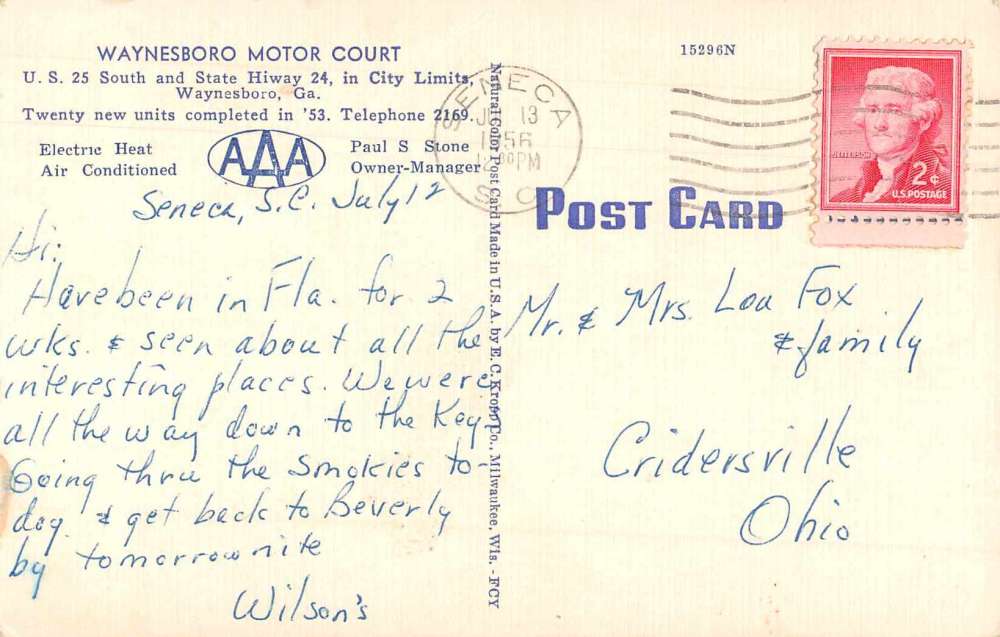 WAYNESBORO MOTOR COURT
U. S. 25 South and State Hiway 24, in City Limits,
Waynesboro, Ga.
Twenty new units completed in '53. Telephone 2169.
Electric Heat
Air Conditioned
AAA
Paul S Stone
Owner-Manager
15296N
SENECA
13
1956
PM
S.C.
JEFFERSON
2¢
U.S. POSTAGE
POST CARD
Natural Color Post Card Made in U.S.A. by E. C. Kropp Co., Milwaukee, Wis. - FCY
Seneca, S.C. July 12
Hi:
Have been in Fla. for 2
wks. & seen about all the
interesting places. We were
all the way down to the Key.
Going thru the Smokies to-
day & get back to Beverly
by tomorrow nite
Wilson's
Mr. & Mrs. Lou Fox
& family
Cridersville
Ohio